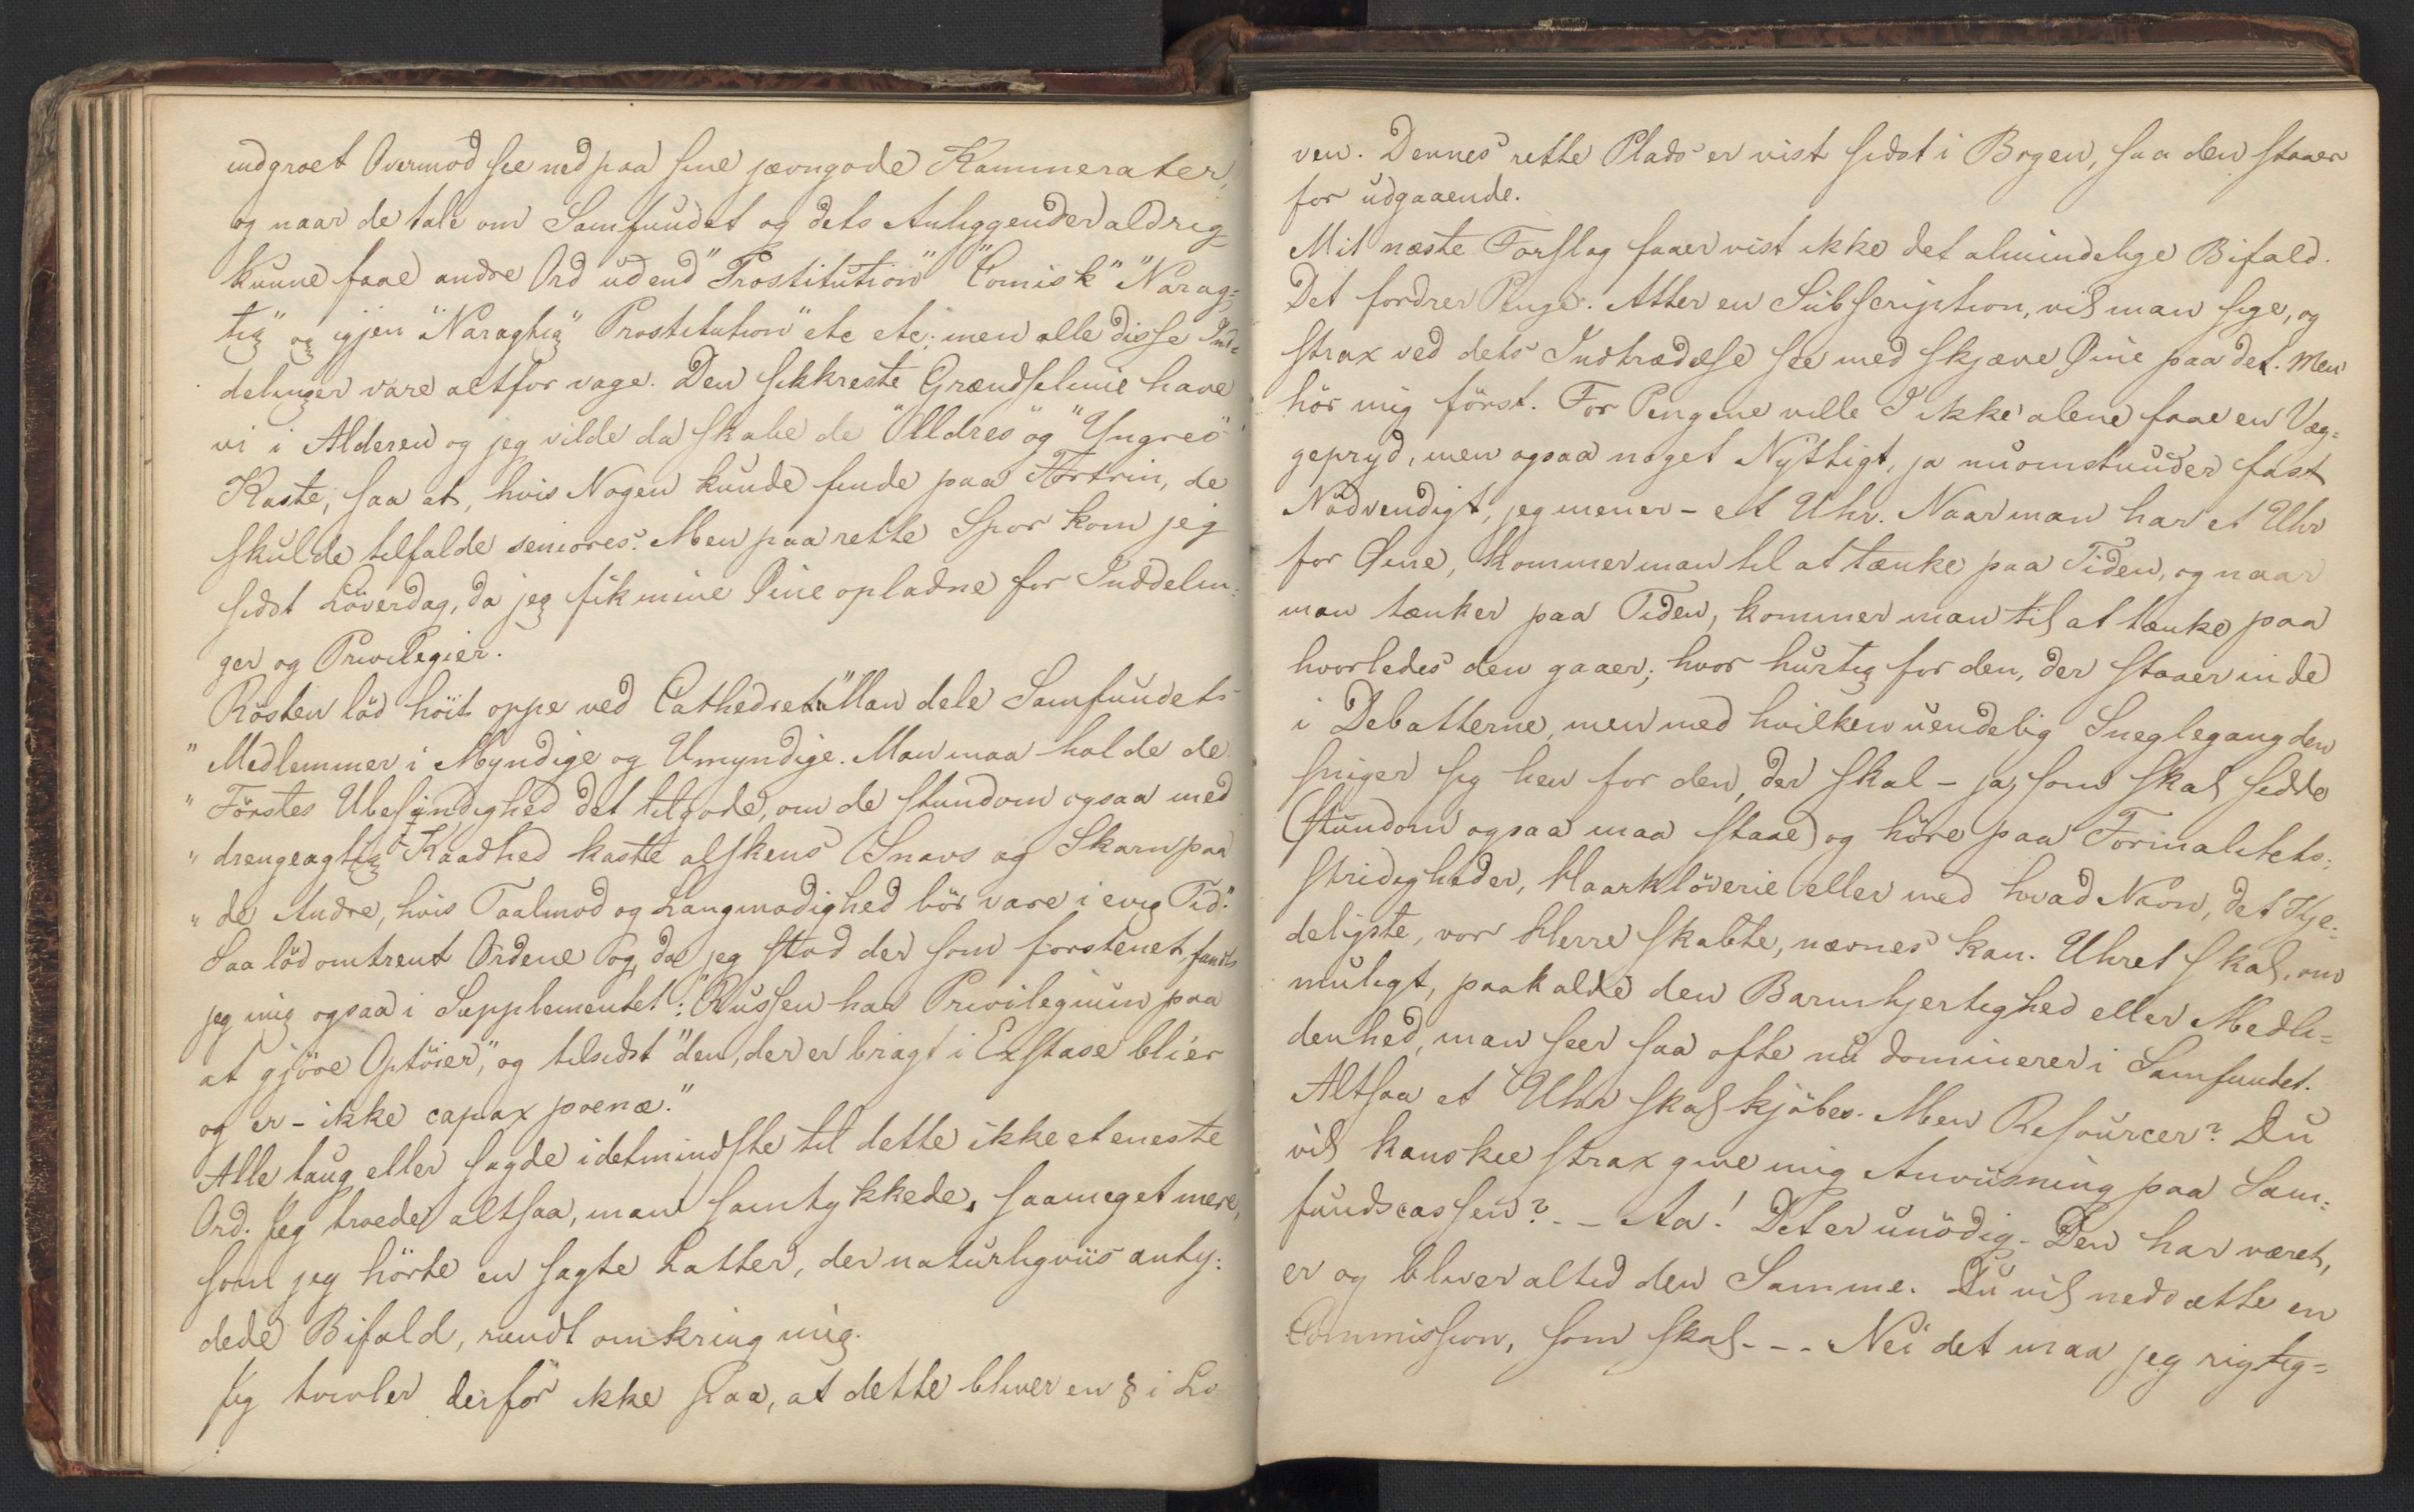 indgroet Overmod see ned paa sine jævngode Kammerater,
og naar de tale om Samfundet og dets Anliggender aldrig
kunne faae andre Ord ud end "Prostitution" "Comisk" "Narag=
tig" og igjen "Naragtig" Prostitution" etc etc; men alle disse Ind=
delinger vare altfor vage. Den sikkreste Grændselinie have
vi i Alderen og jeg vilde da skabe de "Ælldres" og "Yngres"
Kaste, saa at, hvis Nogen kunde finde paa Fortrin, de
skulde tilfalde seniores. Men paa rette Spor kom jeg
sidst Löverdag, da jeg fik mine Øine opladne for Inddelin:
ger og Privilegier.
Rösten löd höit oppe ved Cathedret: "Man dele Samfundets
" Medlemmer i Myndige og Umyndige. Man maa holde de
" Förstes Ubesindighed det tilgode, om de stundom ogsaa med
" drengeagtig Kaadhed kaste alskens Snavs og Skarn paa
" de Andre, hvis Taalmod og Langmodighed bör vare i evig Tid."
Saa löd omtrent Ordene og, da jeg stod der som forstenet, fandt
jeg mig ogsaa i Supplementet: "Russen har Privilegium paa
at gjöre Optöier," og tilsidst "den, der er bragt i Exstase blier
og er - ikke capax poenæ."
Alle taug eller sagde idetmindste til dette ikke et eneste
Ord. Jeg troede altsaa, man samtykkede, saameget mere,
som jeg hörte en sagte Latter, der naturligviis anty:
dede Bifald, rundt omkring mig.
Jeg tvivler derfor ikke paa, at dette bliver en § i Lo
ven. Dennes rette Plads er vist sidst i Bogen, saa den staaer
for udgaaende.
Mit næste Forslag faaer vist ikke det almindelige Bifald.
Det fordrer Penge. Atter en Subscription, vil man sige, og
strax ved dets Indtrædelse see med skjæve Øine paa det. Men
hör mig först. For Pengene ville I ikke alene faae en Væg=
gepryd, men ogsaa noget Nyttigt, ja nuomstunder fast
Nödvendigt, jeg mener - et Uhr. Naar man har et Uhr
for Øine, kommer man til at tænke paa Tiden, og naar
man tænker paa Tiden, kommer man til at tænke paa
hvorledes den gaaer; hvor hurtig for den, der staaer inde
i Debatterne, men med hvilken uendelig Sneglegang den
sniger sig hen for den, der skal - ja, som skal sidde
(stundom ogsaa maa staae) og höre paa Formalitets:
stridigheder, Haarklöverie eller med hvad Navn, det Kje:
deligste, vor Herre skabte, nævnes kan. Uhret skal, om
muligt, paakalde den Barmhjertighed eller Medli=
denhed, man seer saa ofte nu dominerer i Samfundet.
Altsaa et Uhr skal kjöbes. Men Resourcer? Du
vil kanskee strax give mig Anviisning paa Sam:
fundscassen? - - Aa! Det er unödig - Den har været,
er og bliver altid den Samme. Du vil nedsætte en
Commission, som skal - - - Nei det maa jeg rigtig=